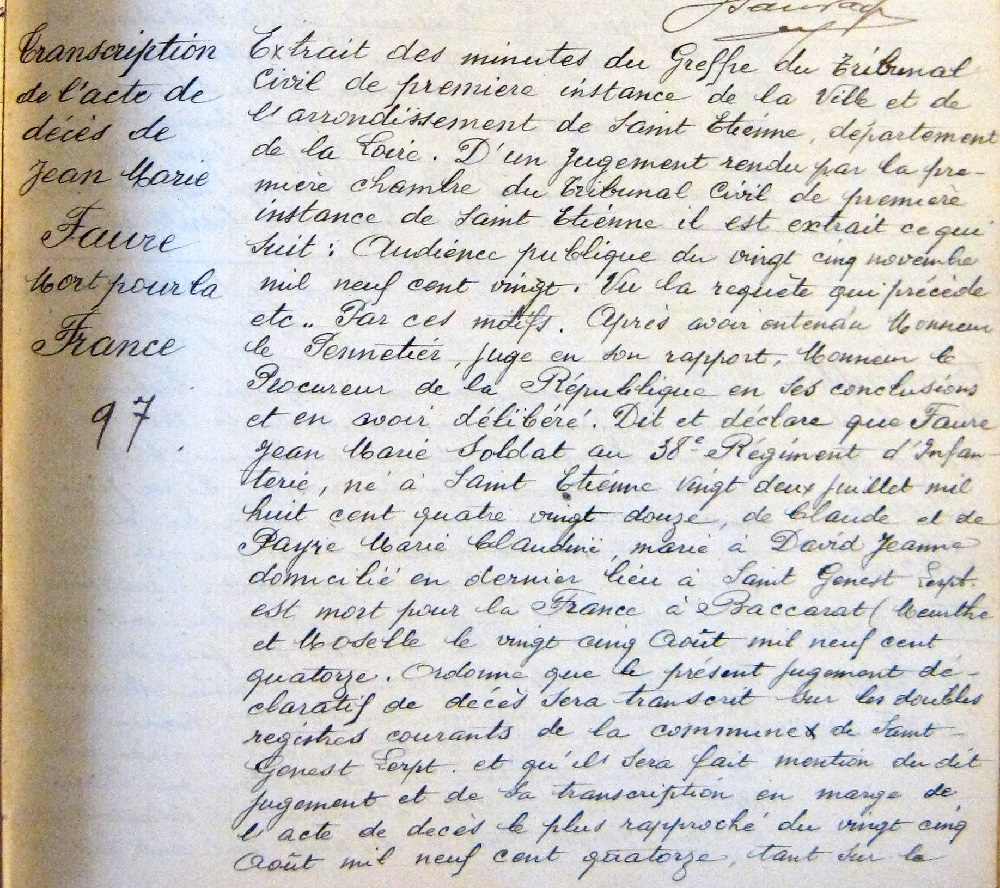 Transcription
de l'acte de
décès de
Jean Marie
Faure
Mort pour la
France
97
Extrait des minutes du Greffe du Tribunal
Civil de première instance de la Ville et de
l'arrondissement de Saint Etienne, département
de la Loire. D'un jugement rendu par la pre-
mière chambre du Tribunal Civil de première
instance de Saint Etienne il est extrait ce qui
suit : Audience publique du vingt cinq novembre
mil neuf cent vingt. Vu la requête qui précède
etc.. Par ces motifs. Après avoir entendu Monsieur
le Pennetier, juge en son rapport, Monsieur le
Procureur de la République en ses conclusions
et en avoir délibéré. Dit et déclare que Faure
Jean Marie Soldat au 38e Régiment d'Infan-
terie, né à Saint Etienne vingt deux juillet mil
huit cent quatre vingt douze, de Claude et de
Payre Marie Claudine, marié à David Jeanne
domicilié en dernier lieu à Saint Genest Lerpt.
est mort pour la France à Baccarat (Meurthe
et Moselle le vingt cinq Août mil neuf cent
quatorze. Ordonne que le présent jugement dé-
claratif de décès sera transcrit sur les doubles
registres courants de la commune de Saint-
Genest Lerpt. et qu'il sera fait mention du dit
jugement et de sa transcription en marge de
l'acte de decès le plus rapproché du vingt cinq
Août mil neuf cent quatorze, tant sur le